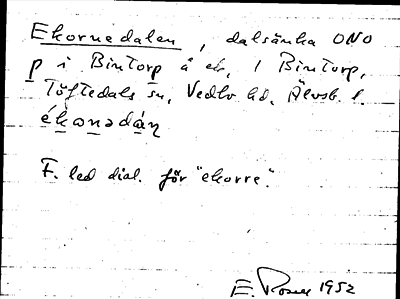 Ekornedalen, dalsänka ONO
p i Bintorp å ek, 1 Bintorp,
Töftedals sn, Vedbo hd, Älvsb. l.
ékoṇədáṇ
F. led dial. för "ekorre".
E. 1952